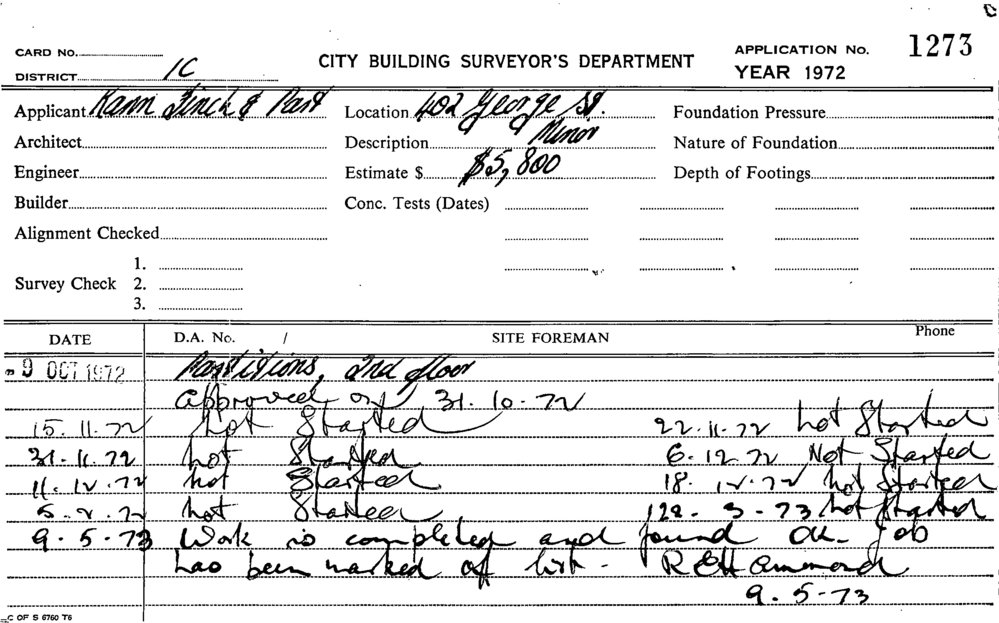 CARD No.
DISTRICT 1C
CITY BUILDING SURVEYOR'S DEPARTMENT
APPLICATION No. 1273
YEAR 1972
Applicant Kann Finch & Part Location 402 George St. Foundation Pressure
Architect Description Minor Nature of Foundation
Engineer Estimate $ $5,800 Depth of Footings
Builder Conc. Tests (Dates)
Alignment Checked
1.
Survey Check 2.
3.
DATE D.A. No. / SITE FOREMAN Phone
9 OCT 1972 Partitions, 2nd floor
approved on 31.10.72
15.11.72 Not Started 22.11.72 Not Started
31.11.72 Not Started 6.12.72 Not Started
11.12.72 Not Started 18.12.72 Not Started
5.2.72 Not Started 28.3.73 Not Started
9.5.73 Work is completed and found OK. Job
has been marked off list - R E Hammond
9.5.73
C OF S 6760 T6